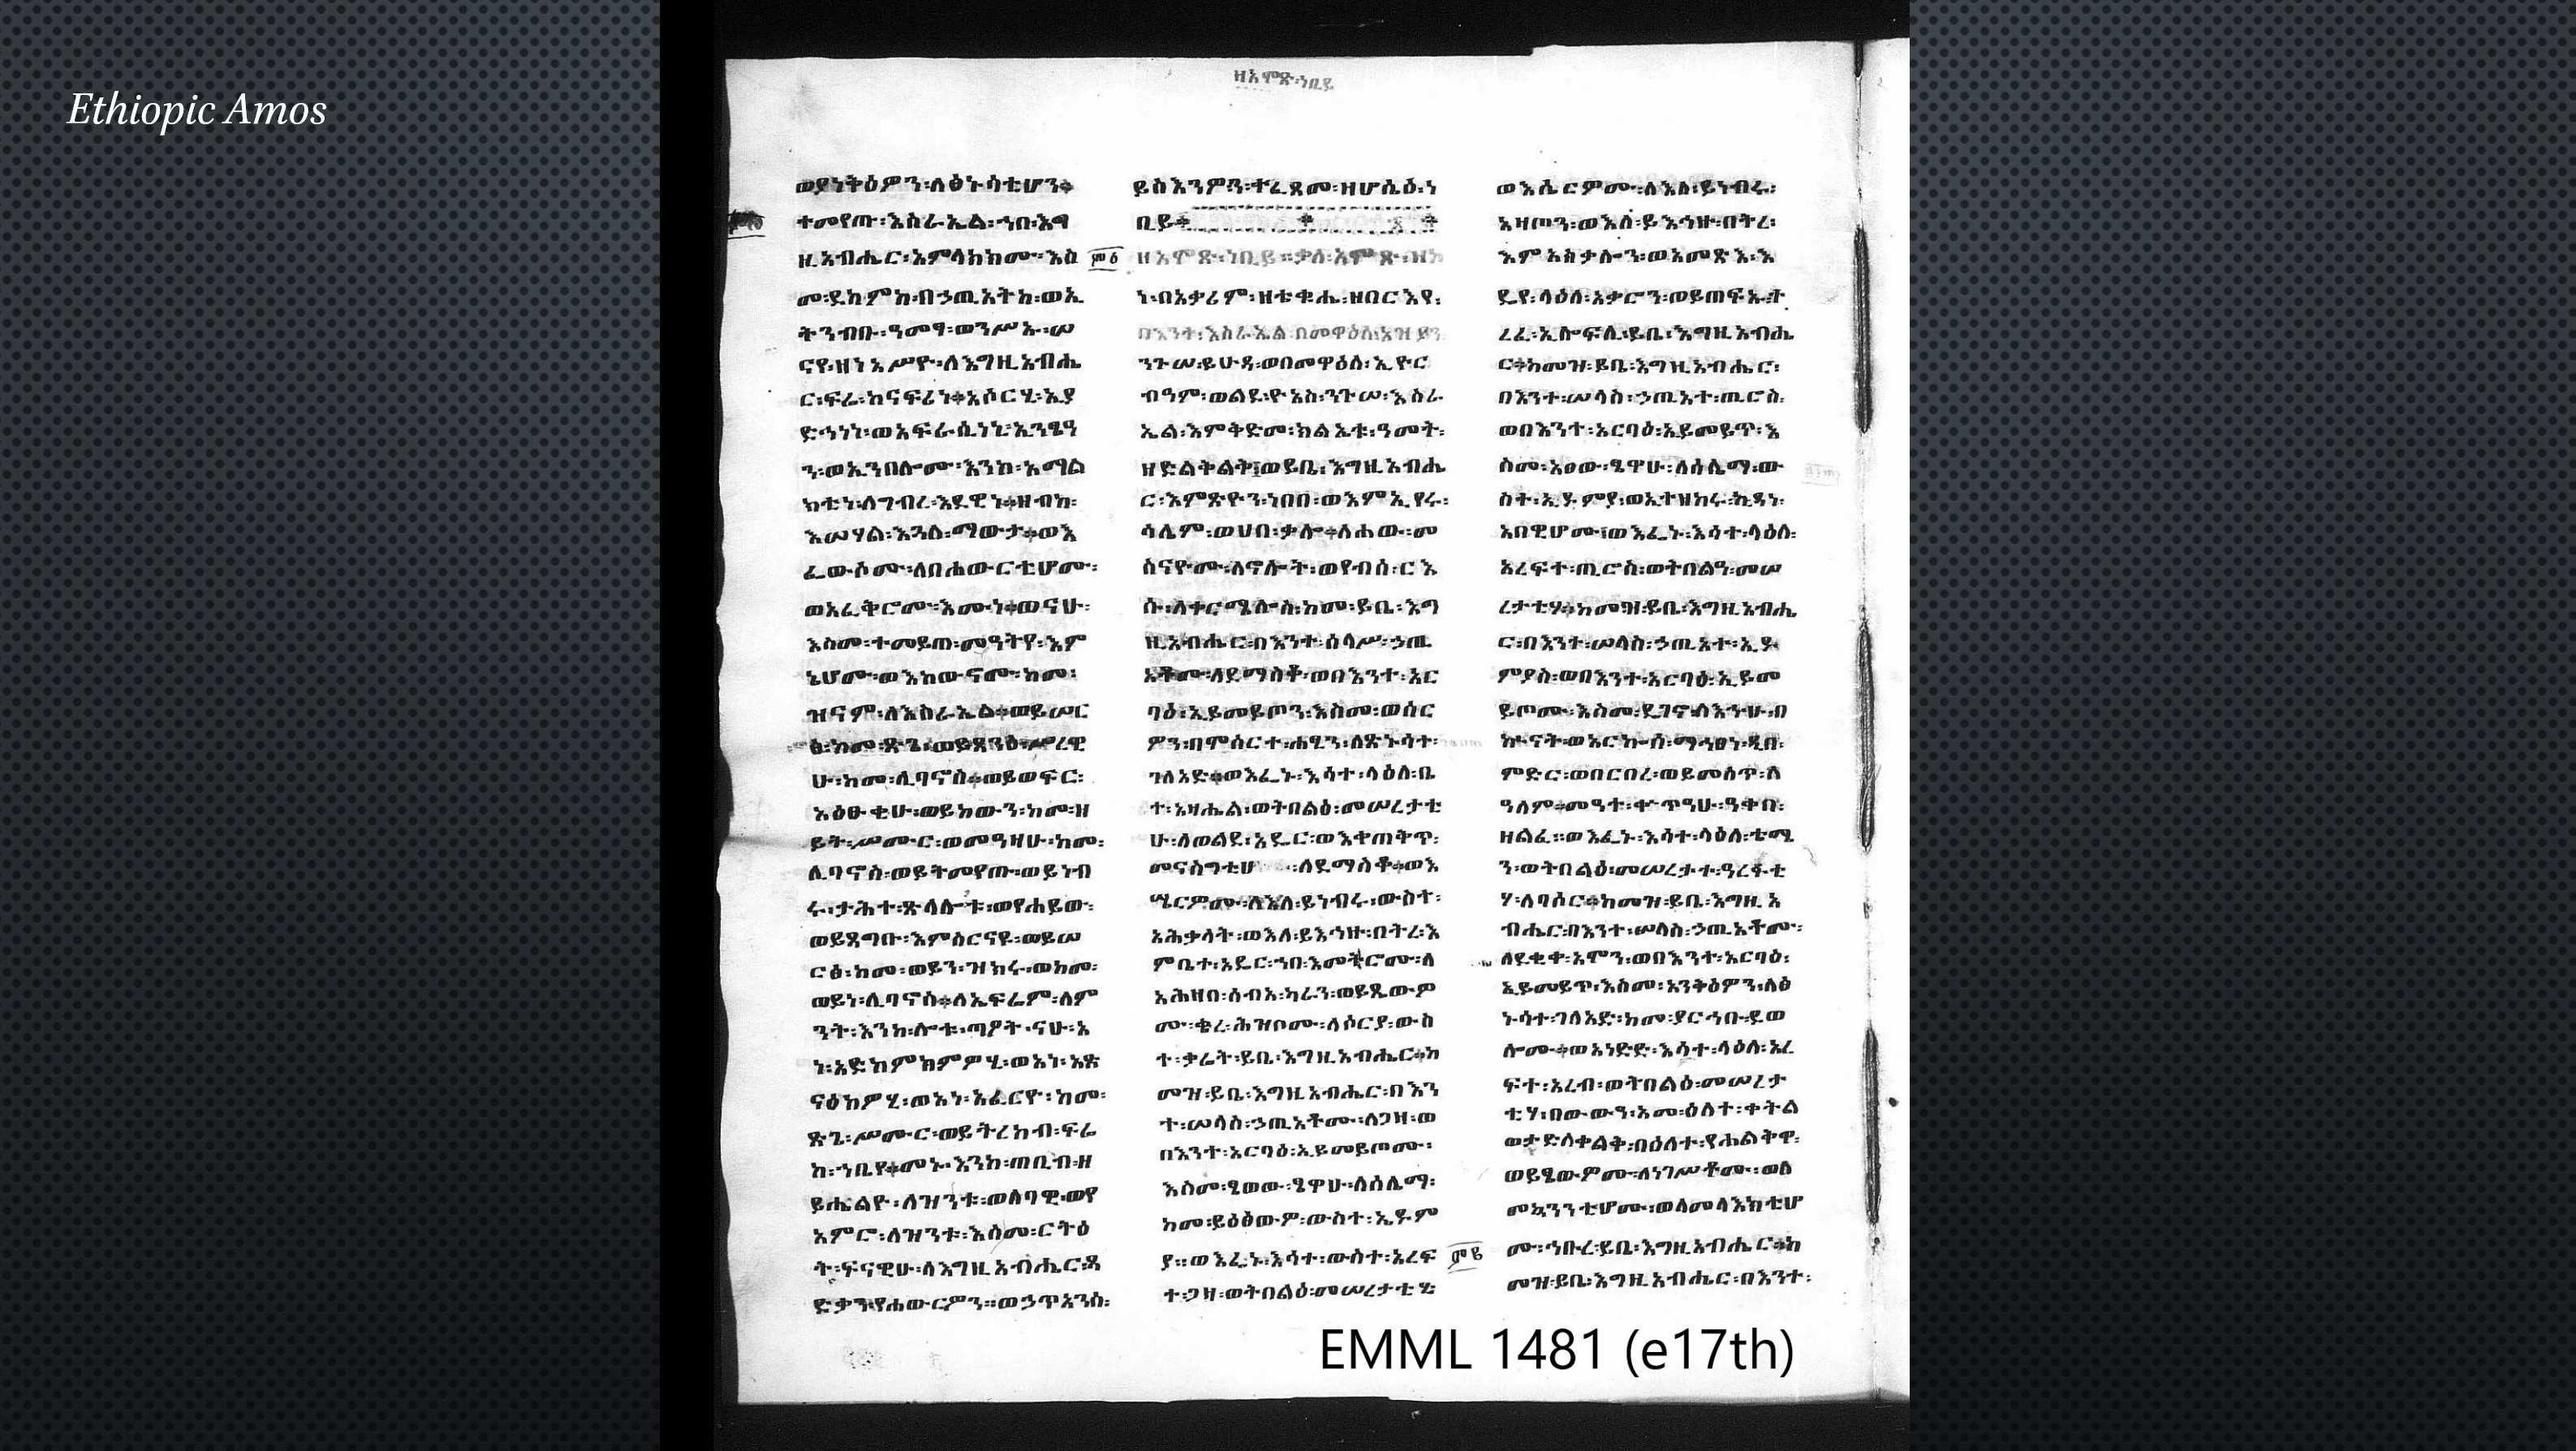 Ethiopic Amos
ዘአሞጽ፡ነቢይ
ወያነቅዕዎን፡ለፅኑሳቲሆን፨
ተመየጡ፡እስራኤል፡ኀበ፡እግ
ዚአብሔር፡አምላክክሙ፡እስ
መ፡ደከምከ፡በኃጢአትከ፡ወኢ
ትንብቡ፡ዓመፃ፡ወንሥኡ፡ሠ
ናየ፡ዘነአሥዮ፡ለእግዚአብሔ
ር፡ፍሬ፡ከናፍሪነ፨አሶርሂ፡ኢያ
ድኅነነ፡ወአፍራሲነኒ፡ኢንፄዓ
ን፡ወኢንበሎሙ፡እንከ፡አማል
ክቲነ፡ለግብረ፡እደዊነ፨ዘብከ፡
እሠሃል፡እጓለ፡ማውታ፨ወእ
ፌውሶሙ፡ለበሐውርቲሆሙ፡
ወአፈቅሮሙ፡እሙነ፨ወናሁ፡
እስመ፡ተመይጠ፡መዓትየ፡እም
ኔሆሙ፡ወእከውናሙ፡ከመ፡
ዝናም፡ለእስራኤል፨ወይሠር
ፅ፡ከመ፡ጽጌ፡ወይጸንዕ፡ሥረዊ
ሁ፡ከመ፡ሊባኖስ፨ወይወፍር፡
አዕፁቂሁ፡ወይከውን፡ከመ፡ዘ
ይት፡ሥሙር፡ወመዓዛሁ፡ከመ፡
ሊባኖስ፡ወይትመየጡ፡ወይነብ
ሩ፡ታሕተ፡ጽላሎቱ፡ወየሐይው፡
ወይጸግቡ፡እምስርናዩ፡ወይሠ
ርፅ፡ከመ፡ወይን፡ዝክሩ፡ወከመ፡
ወይነ፡ሊባኖስ፨ለኤፍሬም፡ለም
ንት፡እንከ፡ሎቱ፡ጣዖት፡ናሁ፡አ
ነ፡አድከምክምዎሂ፡ወአነ፡አጽ
ናዕክዎሂ፡ወአነ፡አፈርዮ፡ከመ፡
ጽጌ፡ሥሙር፡ወይትረከብ፡ፍሬ
ከ፡ኀቤየ፨መኑ፡እንከ፡ጠቢብ፡ዘ
ይሔልዮ፡ለዝንቱ፡ወለባዊ፡ወየ
አምሮ፡ለዝንቱ፡እስመ፡ርትዕ
ት፡ፍናዊሁ፡ለእግዚአብሔር፡ጻ
ድቃን፡የሐውርዎን፡፡ወኃጥአንሰ፡
ይስእንዎን፡ተፈጸመ፡ዘሆሴዕ፡ነ
ቢይ፨
፵፭
ዘአሞጽ፡ነቢይ፡፡ቃለ፡አሞጽ፡ዘኮ
ነ፡በአቃሪም፡ዘቴቁሔ፡ዘበርእየ፡
በእንተ፡እስራኤል፡በመዋዕለ፡ኦዝያን
ንጉሠ፡ይሁዳ፡ወበመዋዕለ፡ኢዮር
ብዓም፡ወልደ፡ዮአስ፡ንጉሠ፡እስራ
ኤል፡እምቅድመ፡ክልኤቱ፡ዓመት፡
ዘድልቅልቅ፤ወይቤ፡እግዚአብሔ
ር፡እምጽዮን፡ነበበ፡ወእምኢየሩ፡
ሳሌም፡ወሀበ፡ቃሎ፨ለሐው፡መ
ስናዮሙ፡ለኖሎት፡ወየብሰ፡ርእ
ሱ፡ለቀርሜሎስ፡ከመ፡ይቤ፡እግ
ዚአብሔር፡በእንተ፡ሰላሥ፡ኃጢ
አቶሙ፡ለደማስቆ፡ወበእንተ፡አር
ባዕ፡ኢይመይጦን፡እስመ፡ወሰር
ዎን፡በሞሰርተ፡ሐፂን፡ለጽኑሳተ፡
ገለአድ፨ወእፌኑ፡እሳተ፡ላዕለ፡ቤ
ተ፡አዛሔል፡ወትበልዕ፡መሠረታቲ
ሁ፡ለወልደ፡አዴር፡ወእቀጠቅጥ፡
መናስግቲሆ፡ለደማስቆ፨ወእ
ሤርዎሙ፡ለእለ፡ይነብሩ፡ውስተ፡
አሕቃላት፡ወእለ፡ይእኅዙ፡በትረ፡እ
ምቤተ፡አዴር፡ኀበ፡እመትሮሙ፡ለ
አሕዛበ፡ሰብአ፡ካራን፡ወይጼውዎ
ሙ፡ቄረ፡ሕዝቦሙ፡ለሶርያ፡ውስ
ተ፡ቃሬት፡ይቤ፡እግዚአብሔር፨ከ
መዝ፡ይቤ፡እግዚአብሔር፡በእን
ተ፡ሠላስ፡ኃጢአቶሙ፡ለጋዛ፡ወ
በእንተ፡አርባዕ፡ኢይመይጦሙ፡
እስመ፡ፄወው፡ፄዋሁ፡ለሰሌማ፡
ከመ፡ይዕፅውዎ፡ውስተ፡ኤዶም
ያ፡፡ወእፌኑ፡እሳተ፡ውስተ፡አረፍ
ተ፡ጋዛ፡ወትበልዕ፡መሠረታቲሂ
፵፮
ወእሴርምሙ፡ለእለ፡ይነብሩ፡
አዛጦን፡ወእለ፡ይእኅዙ፡በትረ፡
እምአስቃሎን፡ወአመጽእ፡እ
ዴየ፡ላዕለ፡አቃሮን፡ወይጠፍኡ፡ት
ረፈ፡ኢሎፍሊ፡ይቤ፡እግዚአብሔ
ር፨ከመዝ፡ይቤ፡እግዚአብሔር፡
በእንተ፡ሠላስ፡ኃጢአተ፡ጢሮስ፡
ወበእንተ፡አርባዕ፡ኢይመይጥ፡እ
ስመ፡አፀው፡ፄዋሁ፡ለሰሌማ፡ው
ስተ፡ኢዶምያ፡ወኢተዘከሩ፡ኪዳነ፡
አበዊሆሙ፤ወእፌኑ፡እሳተ፡ላዕለ፡
አረፍተ፡ጢሮስ፡ወትበልዓ፡መሠ
ረታቲሃ፨ከመዝ፡ይቤ፡እግዚአብሔ
ር፡በእንተ፡ሠላስ፡ኃጢአተ፡ኢዶ
ምያስ፡ወበእንተ፡አርባዕ፡ኢይመ
ይጦሙ፡እስመ፡ዴገኖ፡ለእኁሁ፡በ
ኲናት፡ወአርኩሰ፡ማኅፀነ፡ዲበ፡
ምድር፡ወበርበረ፡ወይመሰጥ፡ለ
ዓለም፨መዓተ፡ቍጥዓሁ፡ዓቀበ፡
ዘልፈ፡፡ወእፌኑ፡እሳተ፡ላዕለ፡ቴማ
ን፡ወትበልዕ፡መሠረታተ፡ዓረፋቲ
ሃ፡ለባሶር፨ከመዝ፡ይቤ፡እግዚአ
ብሔር፡በእንተ፡ሠላስ፡ኃጢአቶሙ፡
ለደቂቀ፡አሞን፡ወበእንተ፡አርባዕ፡
ኢይመይጥ፡እስመ፡አንቅዕዎን፡ለፅ
ኑሳተ፡ገለአድ፡ከመ፡ያርኅቡ፡ደወ
ሎሙ፨ወአነድድ፡እሳተ፡ላዕለ፡አረ
ፍተ፡አረብ፡ወትበልዕ፡መሠረታ
ቲሃ፡በውውዓ፡አመ፡ዕለተ፡ቀትል
ወታድለቀልቅ፡በዕለተ፡የሐልቅዋ፡
ወይፄውዎሙ፡ለነገሥቶሙ፡ወለ
መኳንንቲሆሙ፡ወለመላእክቲሆ
ሙ፡ኅቡረ፡ይቤ፡እግዚአብሔር፨ከ
መዝ፡ይቤ፡እግዚአብሔር፡በእንተ፡
EMML 1481 (e17th)